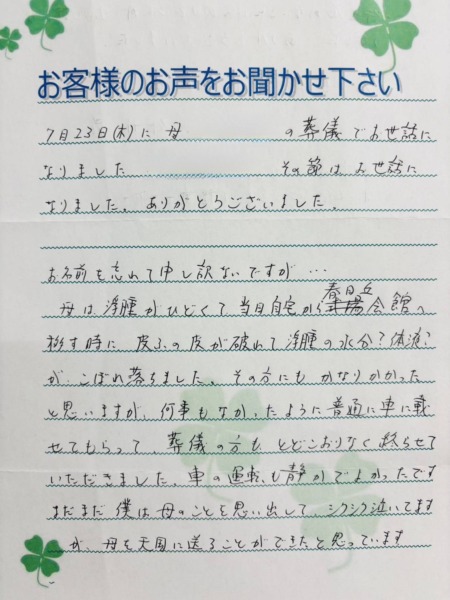 お客様のお声をお聞かせ下さい
7月23日(木)に 母 の葬儀でお世話に
なりました その節は お世話に
なりました。ありがとうございました。
お名前を忘れて申し訳ないですが…
春日丘
母は浮腫がひどくて当日自宅から会館へ
移す時に 皮ふの皮が破れて浮腫の水分?体液?
が、こぼれ落ちました。その方にも かなりかかった
と思いますが、何事もなかったように普通に車に載
せてもらって、葬儀の方も とどこおりなく終らせて
いただきました。車の運転も静かでよかったです
まだまだ 僕は母のことを思い出して、シクシク泣いてます
が、母を天国に送ることができたと思っています